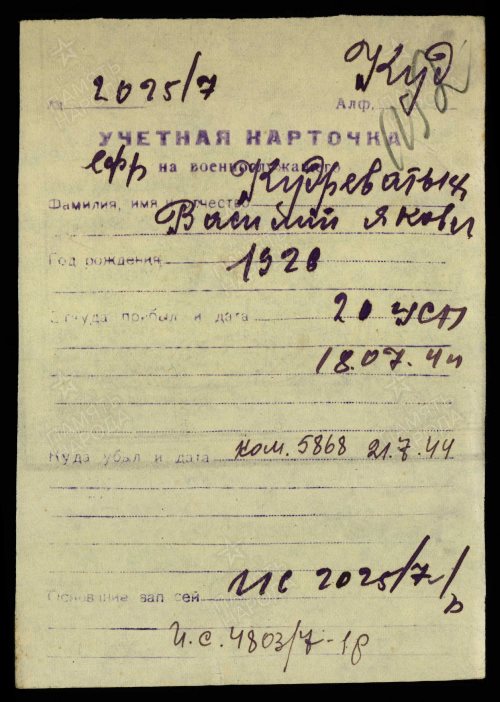 Куд
№ 2025/7 Алф.
УЧЕТНАЯ КАРТОЧКА
ефр на военнослужащего
Кудреватых
Фамилия, имя и отчество
Василий Яковл
Год рождения 1926
Откуда прибыл и дата 20 УСП
18.07.44
Куда убыл и дата ком. 5868 21.7.44
Основание записей ис 2025/7/р
и.с. 4803/7-1р